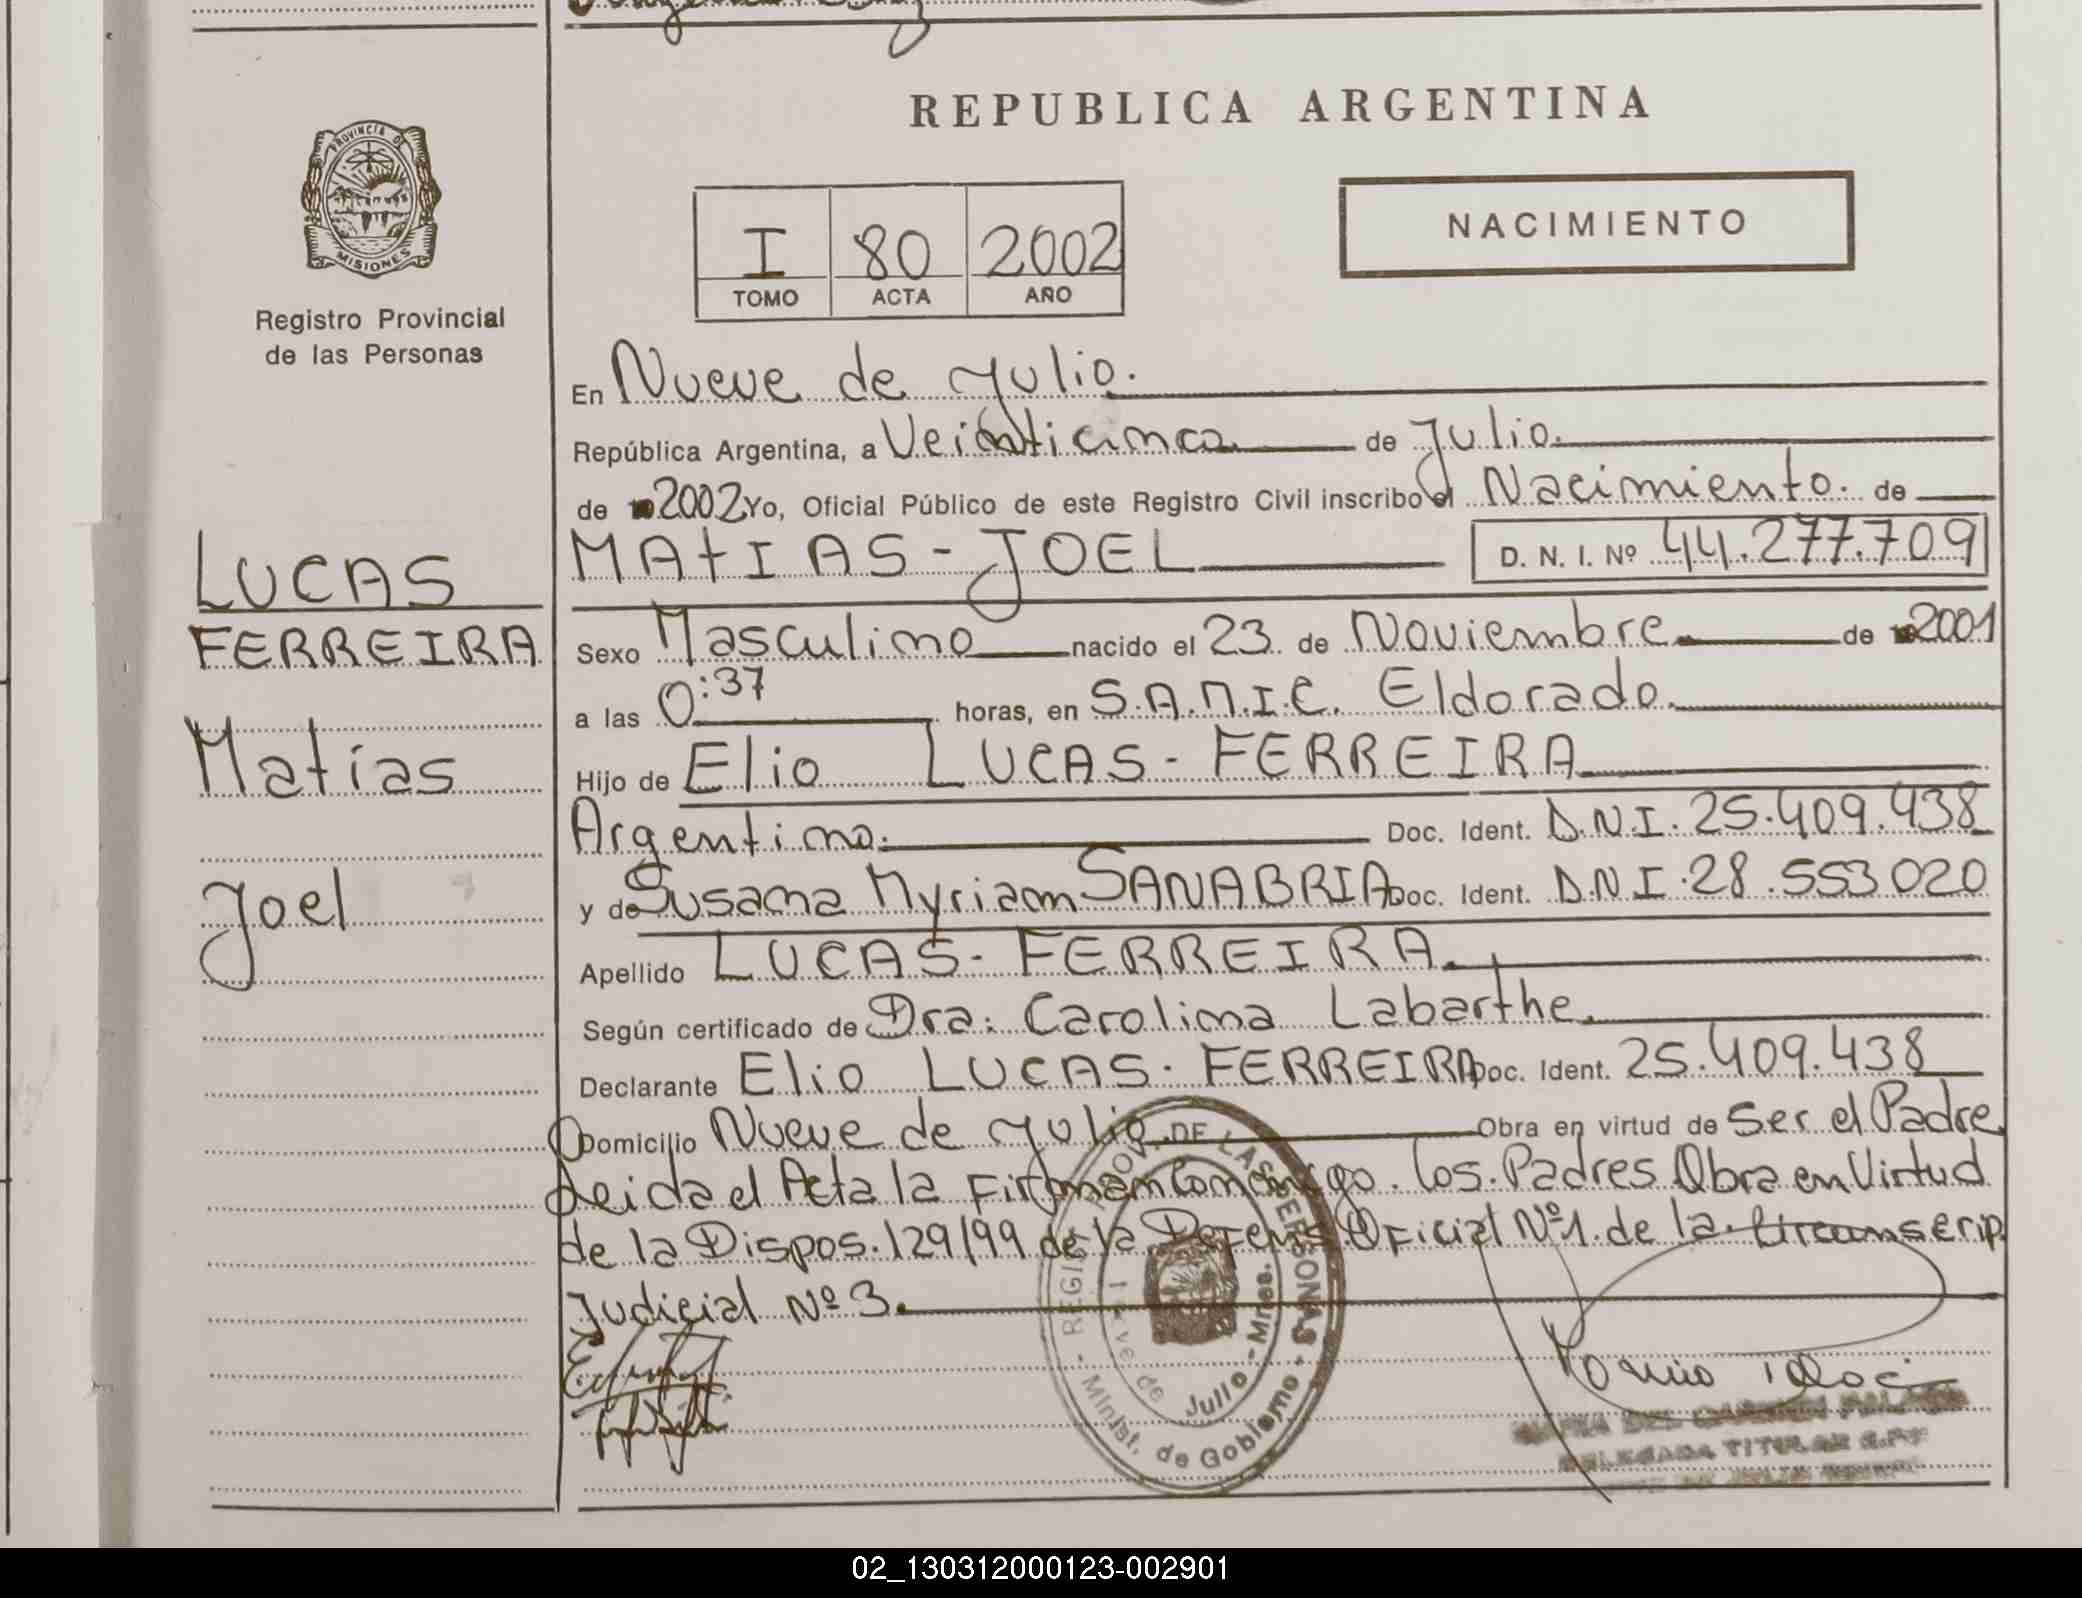 REPUBLICA ARGENTINA
PROVINCIA DE
MISIONES
Registro Provincial
de las Personas
I 80 2002
TOMO ACTA AÑO
NACIMIENTO
En Nueve de Julio.
República Argentina, a Veinticinco de Julio.
de 2002 Yo, Oficial Público de este Registro Civil inscribo el Nacimiento. de
MATIAS - JOEL D. N. I. Nº 44.277.709
Sexo Masculino nacido el 23 de Noviembre de 2001
a las 0:37 horas, en S.A.M.I.C. Eldorado.
Hijo de Elio LUCAS - FERREIRA
Argentino. Doc. Ident. D.N.I. 25.409.438
y de Susana Myriam SANABRIA Doc. Ident. D.N.I. 28.553020
Apellido LUCAS - FERREIRA.
Según certificado de Dra: Carolina Labarthe.
Declarante Elio LUCAS - FERREIRA Doc. Ident. 25.409.438
Domicilio Nueve de Julio Obra en virtud de Ser el Padre
Leida el Acta la Firman Conmigo. los Padres Obra en Virtud
de la Dispos. 129/99 de la Defens. Oficial Nº1. de la Circunscrip.
Judicial Nº 3.
LUCAS
FERREIRA
Matías
Joel
REGIST. PROV. DE LAS PERSONAS
Minist. de Gobierno
Nueve de Julio - Mnes.
DELEGADA TITULAR
02_130312000123-002901